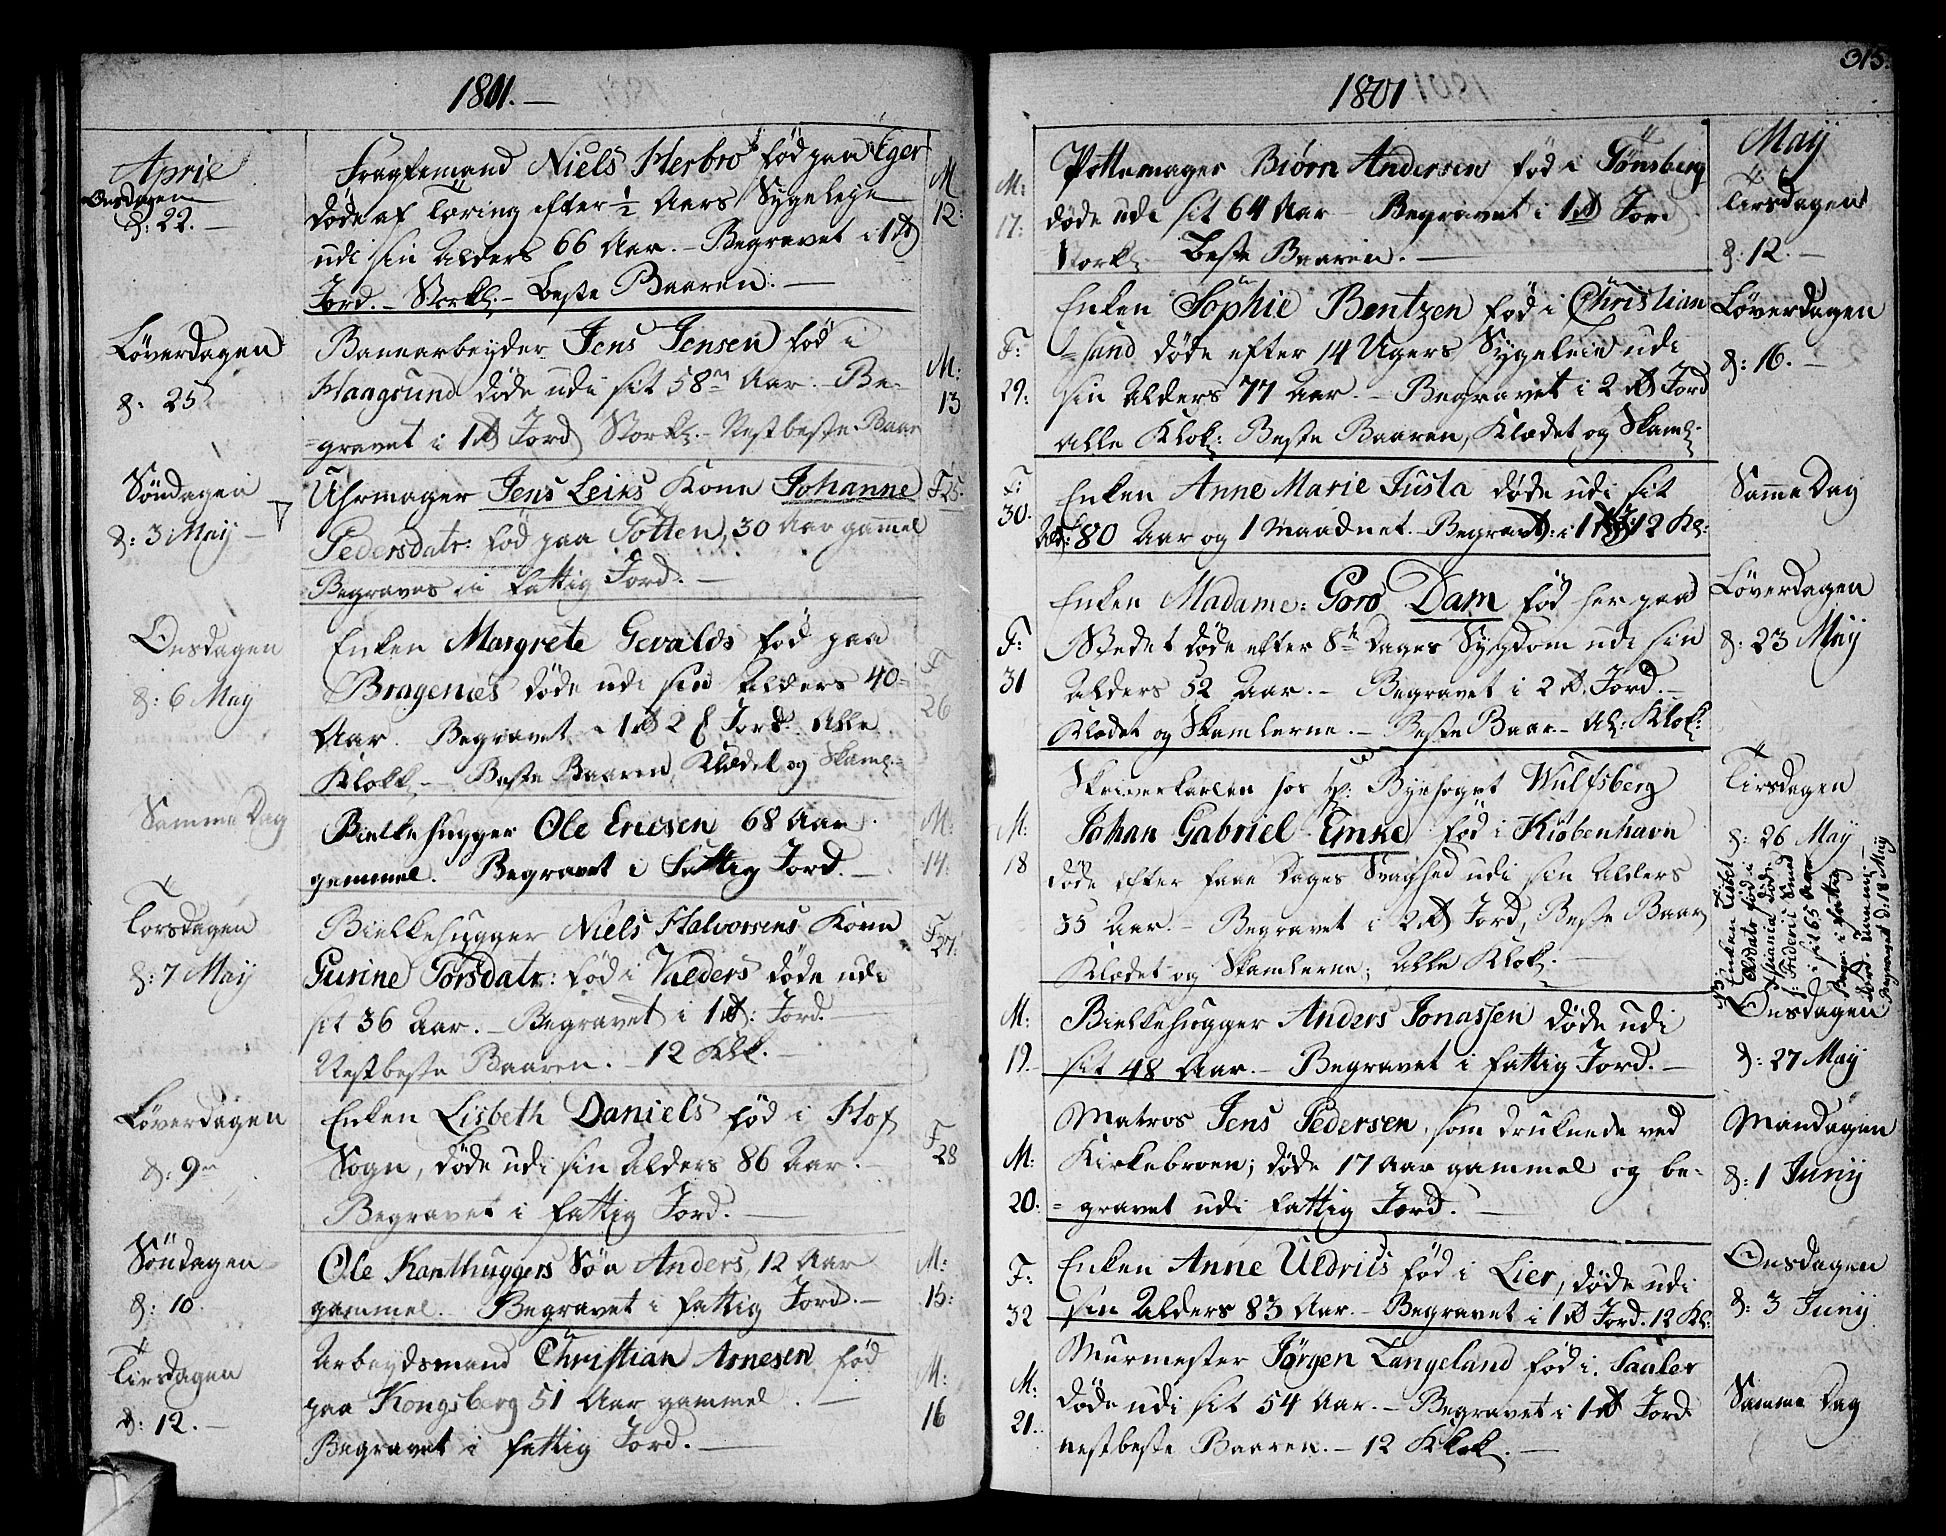 1801.
Aprie
Onsdagen
d: 22.
Fragtemand Niels Herbro fød paa Eger
døde af Tæring efter ½ Aars Sygeleje
udi sin Alders 66 Aar. - Begravet i 1 rd
Jord. - Stork. - Beste Baaren. -
M
12:
Løverdagen
d: 25
Bannarbeyder Jens Jensen fød i
Haagsund døde udi sit 58de Aar. Be-
=gravet i 1 rd Jord Stork. - Nestbeste Baar
M:
13
Søndagen
d: 3 May -
Uhrmager Jens Leiks Kone Johanne
Pedersdatr: fød paa Totten, 30 Aar gammel
Begraves in fattig Jord. -
F 25:
Onsdagen
d: 6 May
Enken Margrete Gevalds fød paa
Bragenæs døde udi sin Alders 40-
Aar. Begravet 1 rd 2 Jord. Alle
Klokk. - Beste Baaren, Klædet og Skaml. -
F
26
Samme Dag
Bielkehugger Ole Ericsen 68 Aar
gammel. Begravet i Fattig Jord. -
M:
14.
Torsdagen
d: 7 May
Bielkehugger Niels Halvorsens Kone
Gurine Torsdatr: fød i Valders døde udi
sit 36 Aar. - Begravet i 1 rd: Jord. -
Nestbeste Baaren. - 12 Klk. -
F
27:
Løverdagen
d: 9de
Enken Lisbeth Daniels fød i Hof
Sogn, døde udi sin Alders 86 Aar. -
Begravet i fattig Jord. -
F
28
Søndagen
d: 10.
Ole Kanthuggers Søn Anders, 12 Aar
gammel. Begravet i fattig Jord. -
M:
15:
Tirsdagen
d: 12. -
Arbeydsmand Christian Arnesen fød
paa Kongsberg 51 Aar gammel. -
Begravet i fattig Jord. -
M:
16
1801
315.
May
M:
17:
Pottemager Biørn Andersen fød i Tønsberg
døde udi sit 64 Aar - Begravet i 1 rd Jord
Stork. Beste Baaren. -
Tirsdagen
d: 12. -
F:
29:
Enken Sophie Bentzen fød i Christian
=sand døde efter 14 Ugers Sygeleie udi
sin Alders 77 Aar. - Begravet i 2 rd Jord
Alle Klok: Beste Baaren, Klædet og Skaml. -
Løverdagen
d: 16. -
F:
30.
Enken Anne Marie Justa døde udi sit
Ald: 80 Aar og 1 Maadnet. Begravet: i 1 rd 12 Kl:
Samme Dag
F:
31
Enken Madame: Goro Dam fød her paa
Stedet døde efter 8te Dages Sygdom udi sin
Alders 52 Aar. - Begravet i 2 rd. Jord. -
Klædet og Skamlerne. - Beste Baar - Al: Klok:
Løverdagen
d: 23 May
M:
18
Skriverkarlen hos Hr: Byefoget Wulfsberg
Johan Gabriel Emke fød i Kiøbenhavn
døde efter faae Dages Svaghed udi sin Alders
35 Aar. - Begravet i 2 rd Jord, Beste Baar
Klædet og Skamlerne; Alle Klok. -
Tirsdagen
d: 26 May
Enken Lisbet
Olsdatr fød i
døde
i Frideri
i sit 65 Aar
Begr: i fattig
Jord.
Begravet d: 18 May
M:
19.
Bielkehugger Anders Jonassen døde udi
sit 48 Aar. - Begravet i fattig Jord. -
Onsdagen
d: 27 May
M:
20:
Matros Jens Pedersen, som druknede ved
Kirkebroen; døde 17 Aar gammel og be-
=gravet udi fattig Jord. -
Mandagen
d: 1 Juny
F:
32
Enken Anne Uldrics fød i Lier, døde udi
sin Alders 83 Aar. - Begravet i 1 rd Jord. 12 Kl:
Onsdagen
d: 3 Juny
M:
21.
Murmester Jørgen Langeland fød i Sauler
døde udi sit 54 Aar. - Begravet i 1 rd Jord
nestbeste Baaren. - 12 Klok. -
Samme Dag